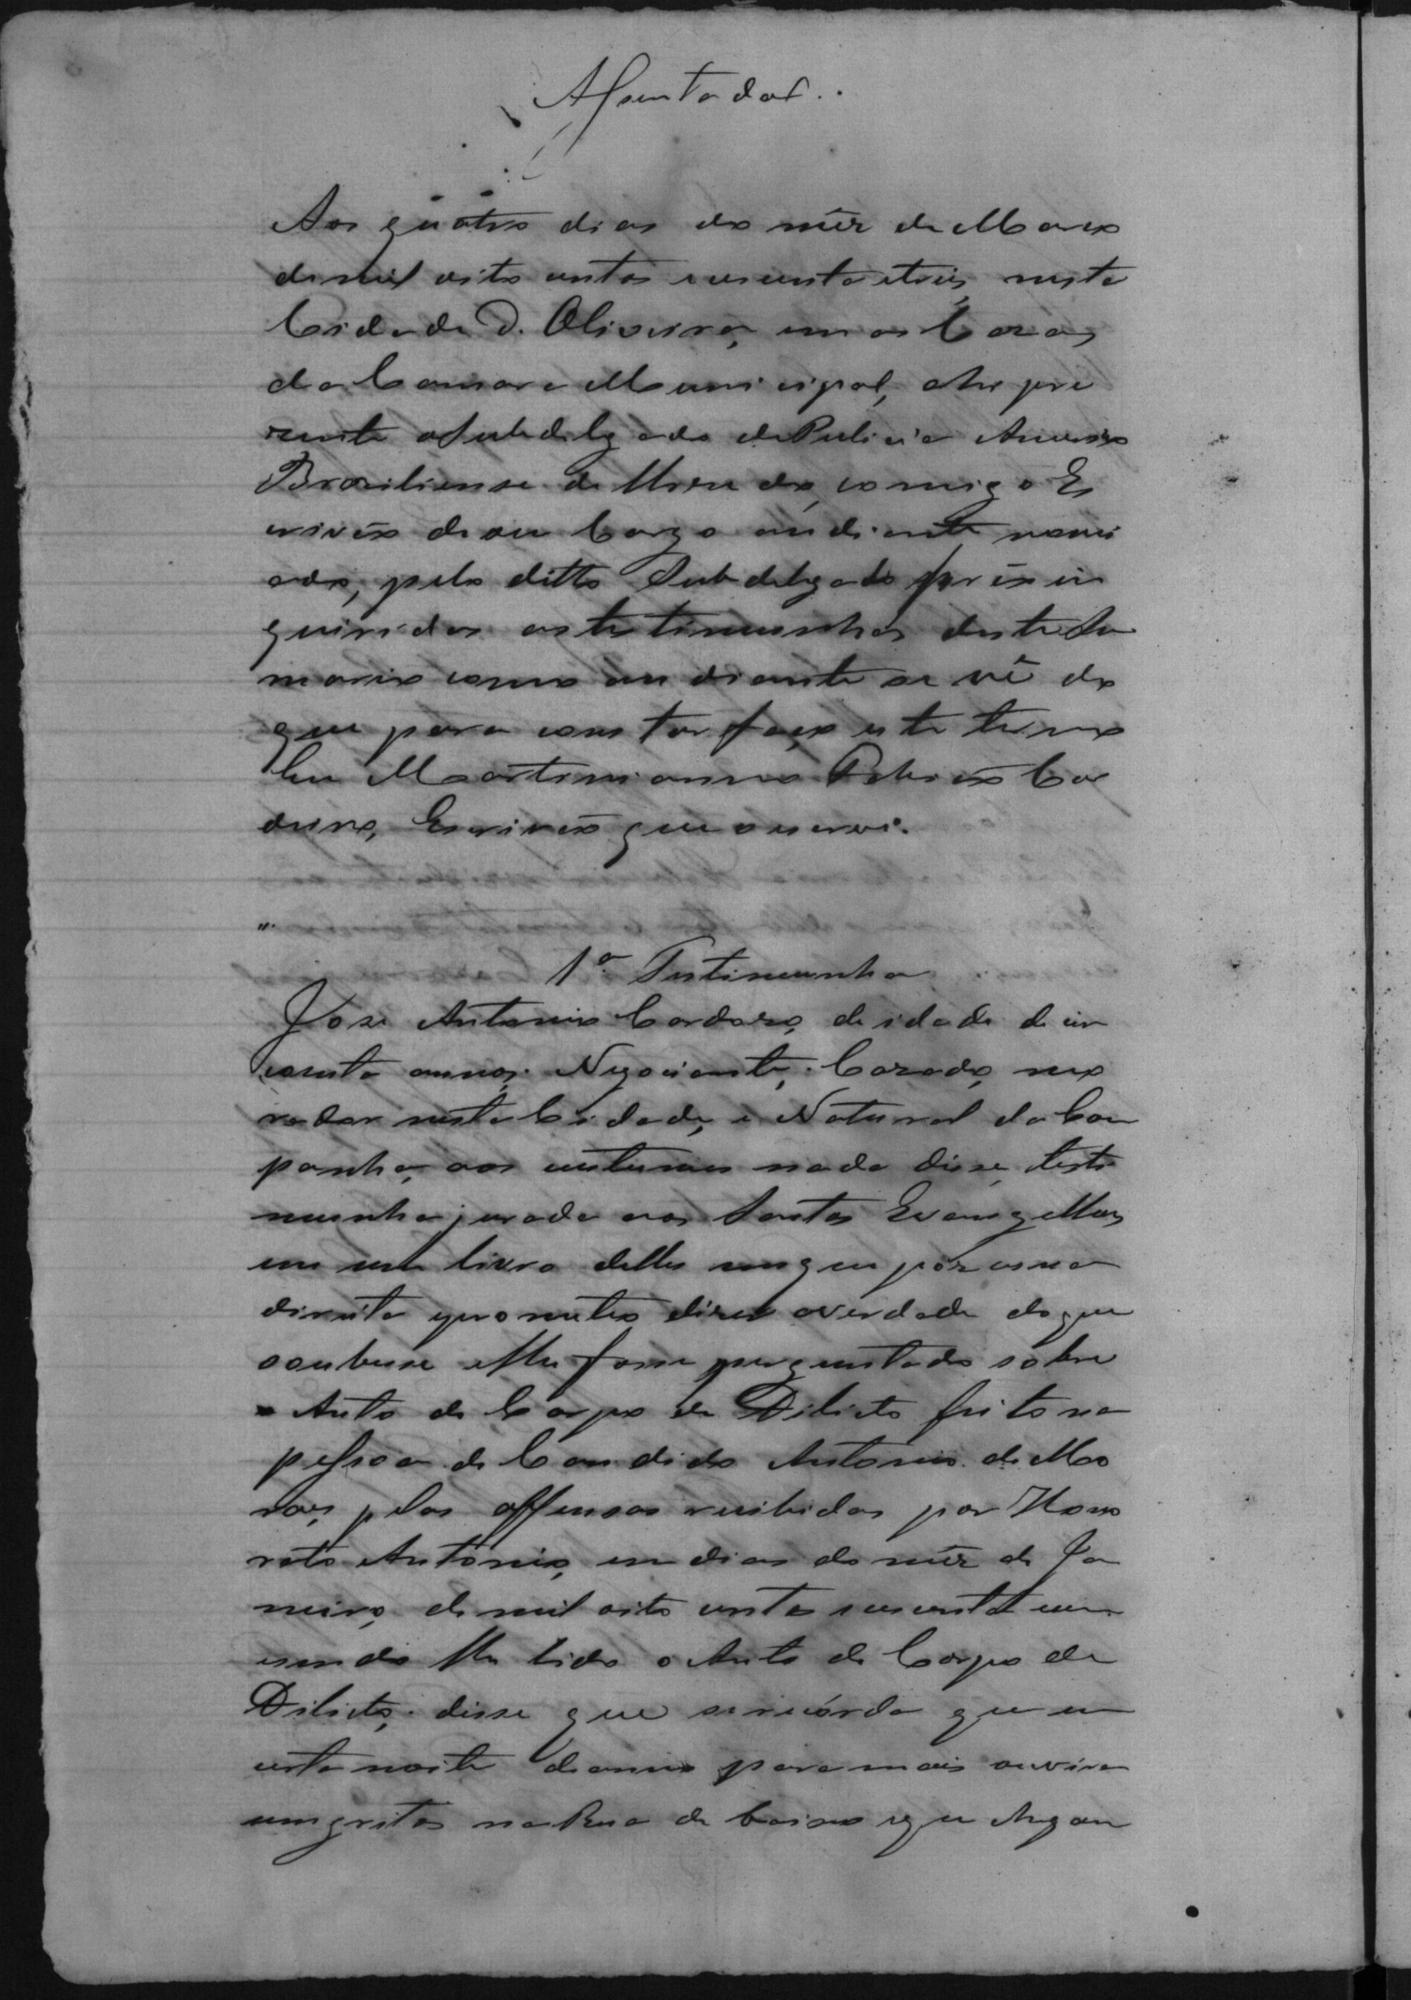 Assentada.
Aos quatro dias do mêz de Março
de mil oito centos e secenta e treis, nesta
Cidade d'Oliveira, em as Cazas
da Camara Municipal, ahi pre
zente o Subdelegado de Policia
Braziliense de comigo Es
crivão de seu Cargo ao diante nomi
ado, pelo ditto Subdelegado forão in
quiridas as testimunhas deste Su
mario como ao diante se vê do
que para constar faço este termo
Eu Martimianno Cor
deiro, Escrivão que o escrevi.
1ª Testimunha
Jose Antonio Cardozo, de idade de cin
coenta annos, Negociante, Cazado, mo
rador nesta Cidade, e Natural da Cam
panha, aos custumes nada disse, testi
munha jurada aos Santos Evangelhos
em um livro delles em que pôz a sua
direita e prometeo dizer a verdade do que
soubesse e lhe fosse perguntado sobre
o Auto de Corpo de Dilicto feito na
pessoa de Candido Antonio de Mo
raes, pelas offensas recibidas por Hono
rato Antonio, em dias do mêz de Ja
neiro, de mil oito centos e secenta e um
sendo lhe lido o Auto de Corpo de
Dilicto, disse que se recórda que em
certa noite de anno para mais ouvira
uns gritos na Rua de baixo e que chegan